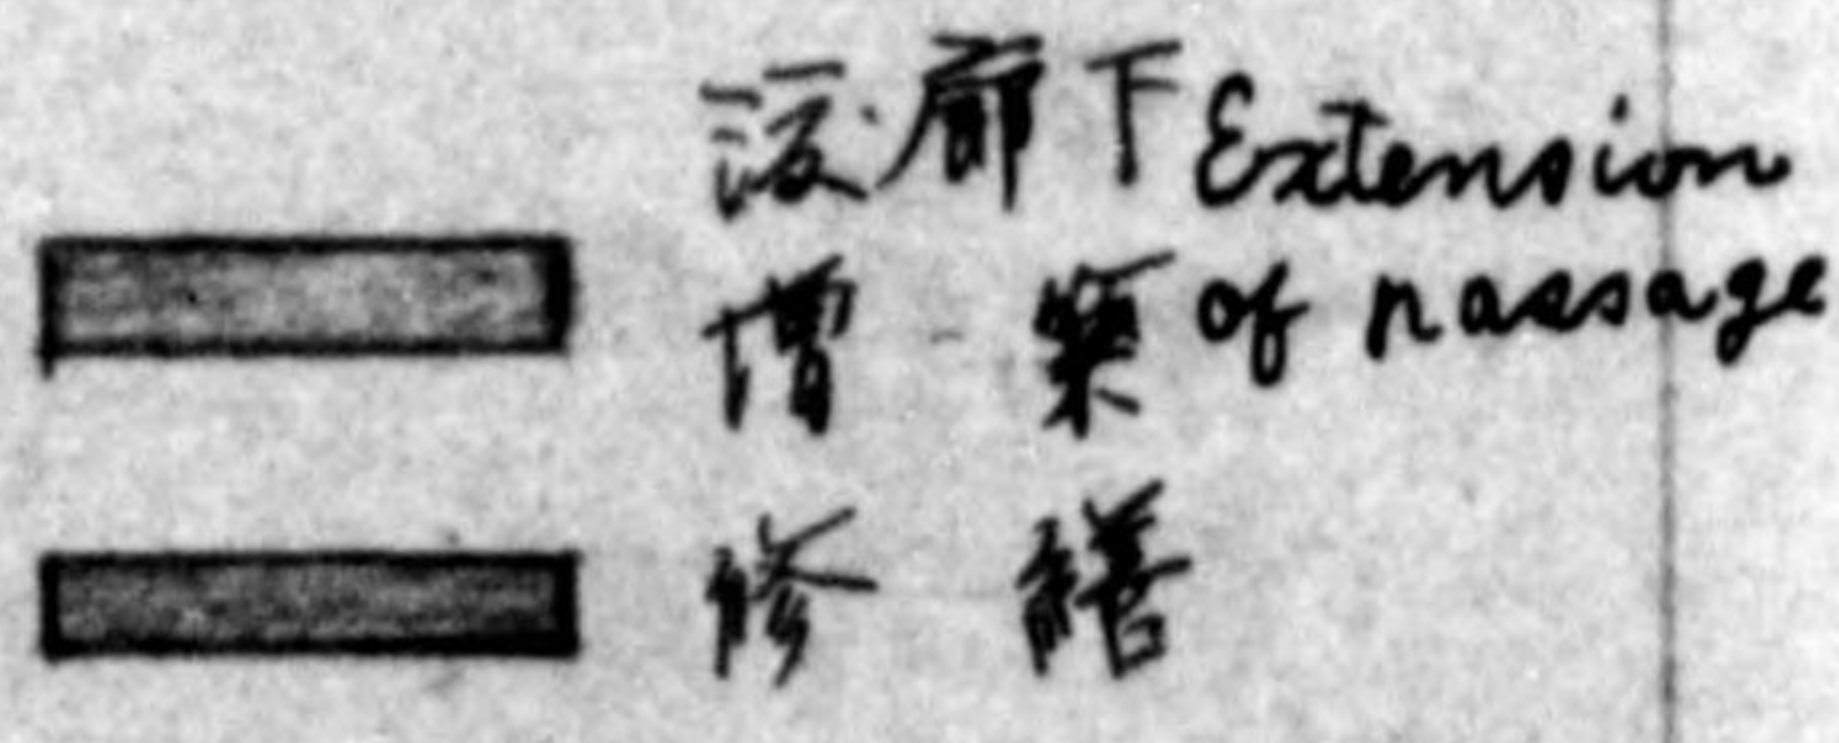 渡廊下 Extension
増築 of passage
修繕